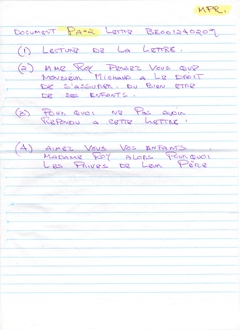 MPR.
DOCUMENT PA-2 LETTRE BE001240209
(1) LECTURE DE LA LETTRE.
(2) MME ROY PENSEZ VOUS QUE
MONSIEUR MICHAUD A LE DROIT
DE S'ASSURER DU BIEN ETRE
DE SES ENFANTS.
(3) POURQUOI NE PAS AVOIR
REPONDU A CETTE LETTRE.
(4) AIMEZ VOUS VOS ENFANTS
MADAME ROY ALORS POURQUOI
LES PRIVES DE LEUR PÈRE